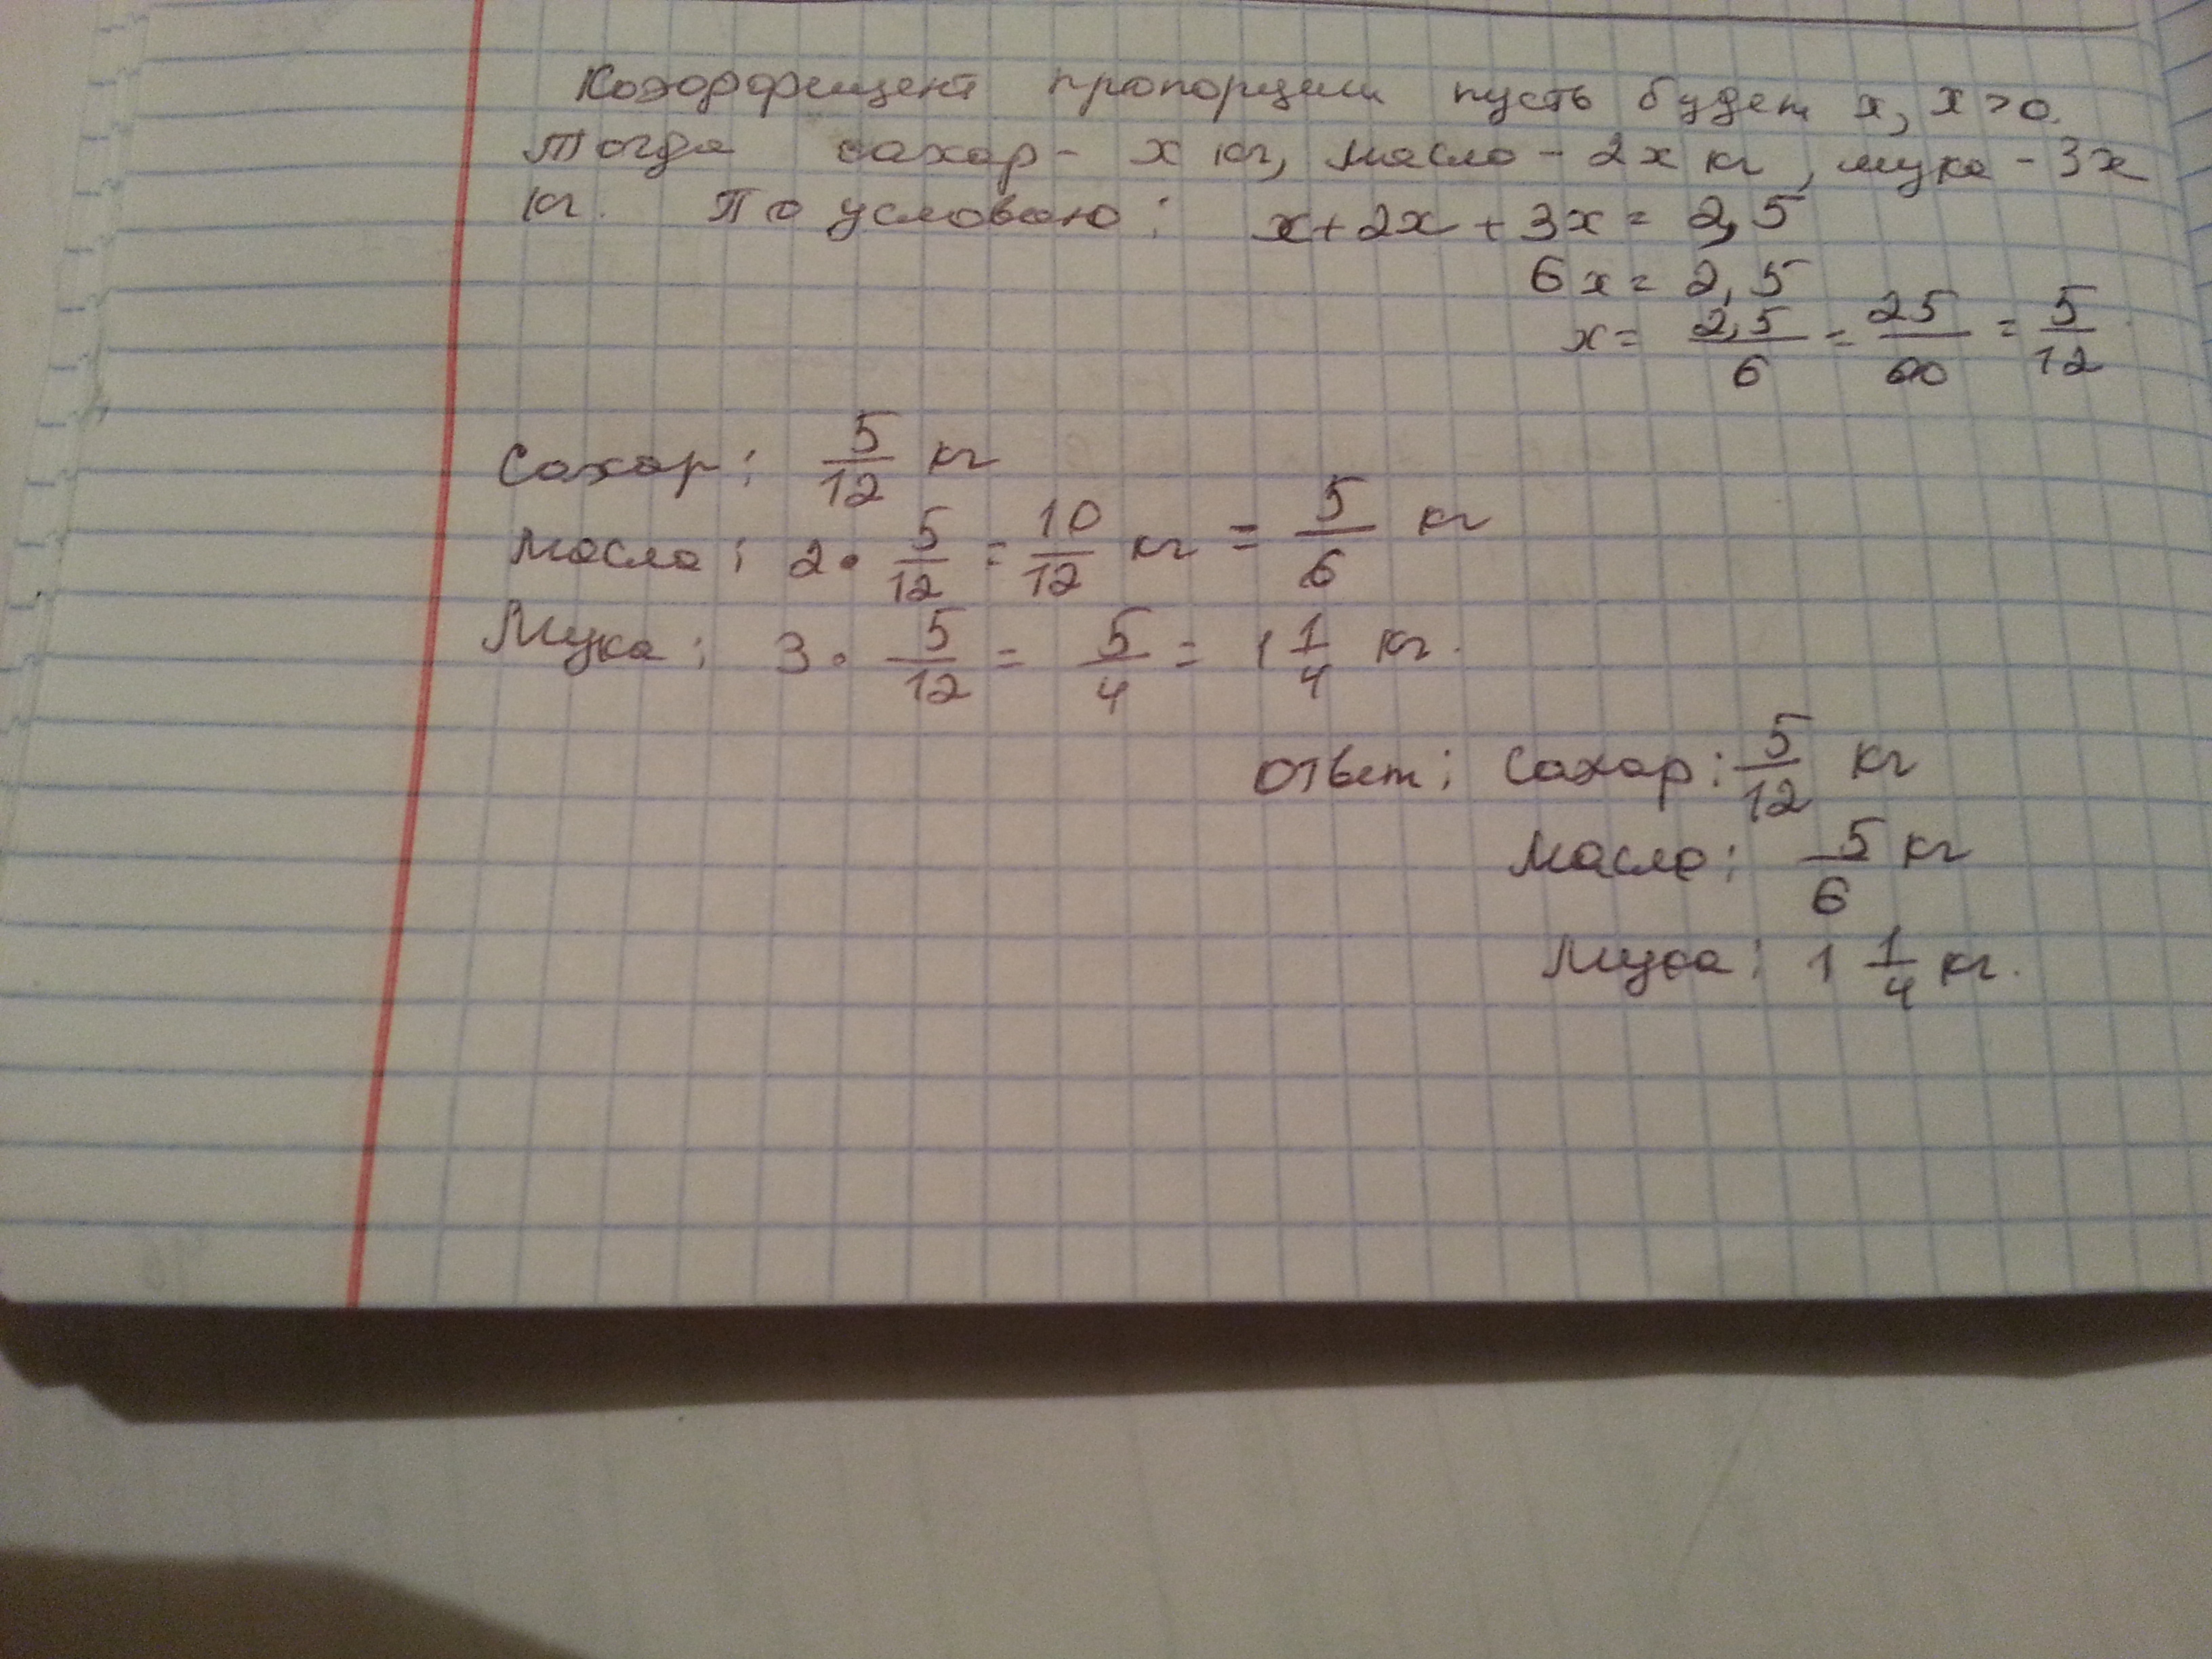 Коэффициент пропорции пусть будет x, x > 0.
Тогда сахар - x кг, масло - 2x кг, мука - 3x
кг. По условию: x + 2x + 3x = 2,5
6x = 2,5
x = 2,5/6 = 25/60 = 5/12
Сахар: 5/12 кг
Масло: 2 · 5/12 = 10/12 кг = 5/6 кг
Мука: 3 · 5/12 = 5/4 = 1 1/4 кг.
Ответ: Сахар: 5/12 кг
Масло: 5/6 кг
Мука: 1 1/4 кг.